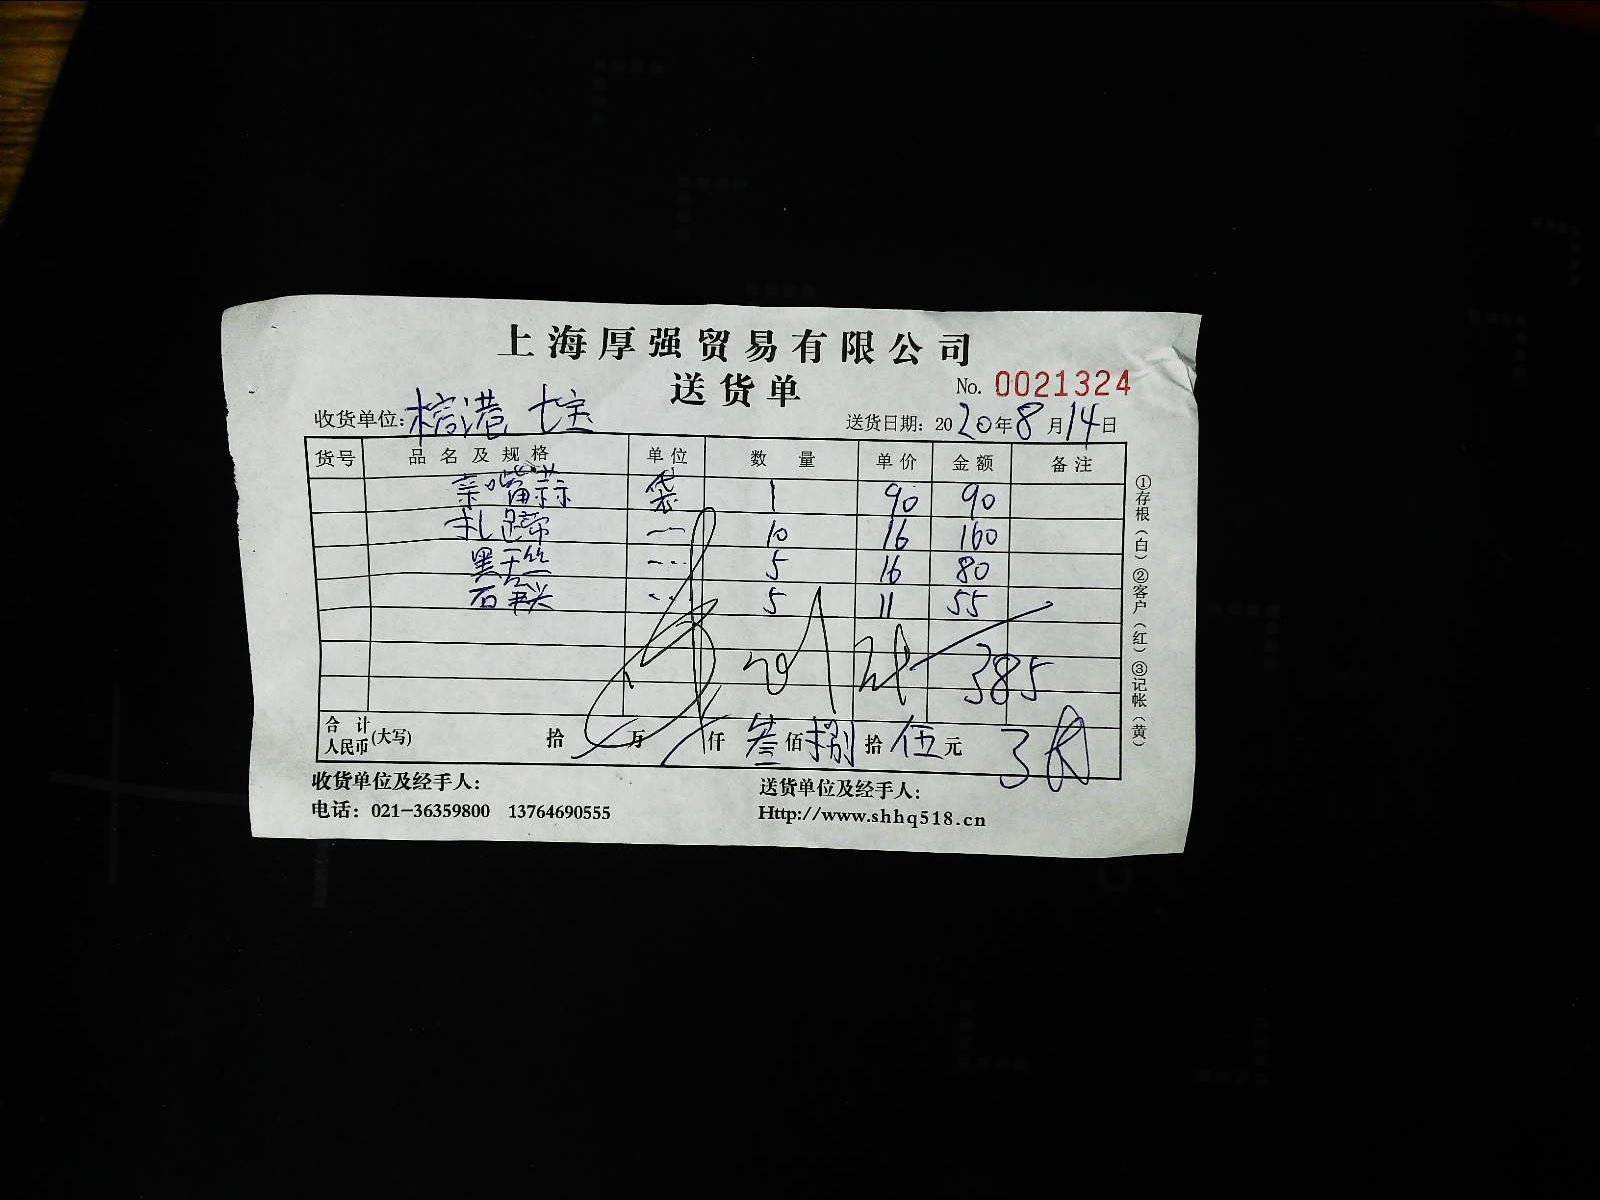 上海厚强贸易有限公司
送货单
No. 0021324
收货单位: 七宝
送货日期: 2020年8月14日
货号 品名及规格 单位 数量 单价 金额 备注
亲嘴蒜 袋 1 90 90
扎蹄 10 16 160
黑千丝 5 16 80
5 11 55
385
合计人民币(大写) 拾 万 仟 叁佰捌拾伍元
收货单位及经手人:
送货单位及经手人:
电话: 021-36359800 13764690555
Http://www.shhq518.cn
①存根(白)②客户(红)③记帐(黄)